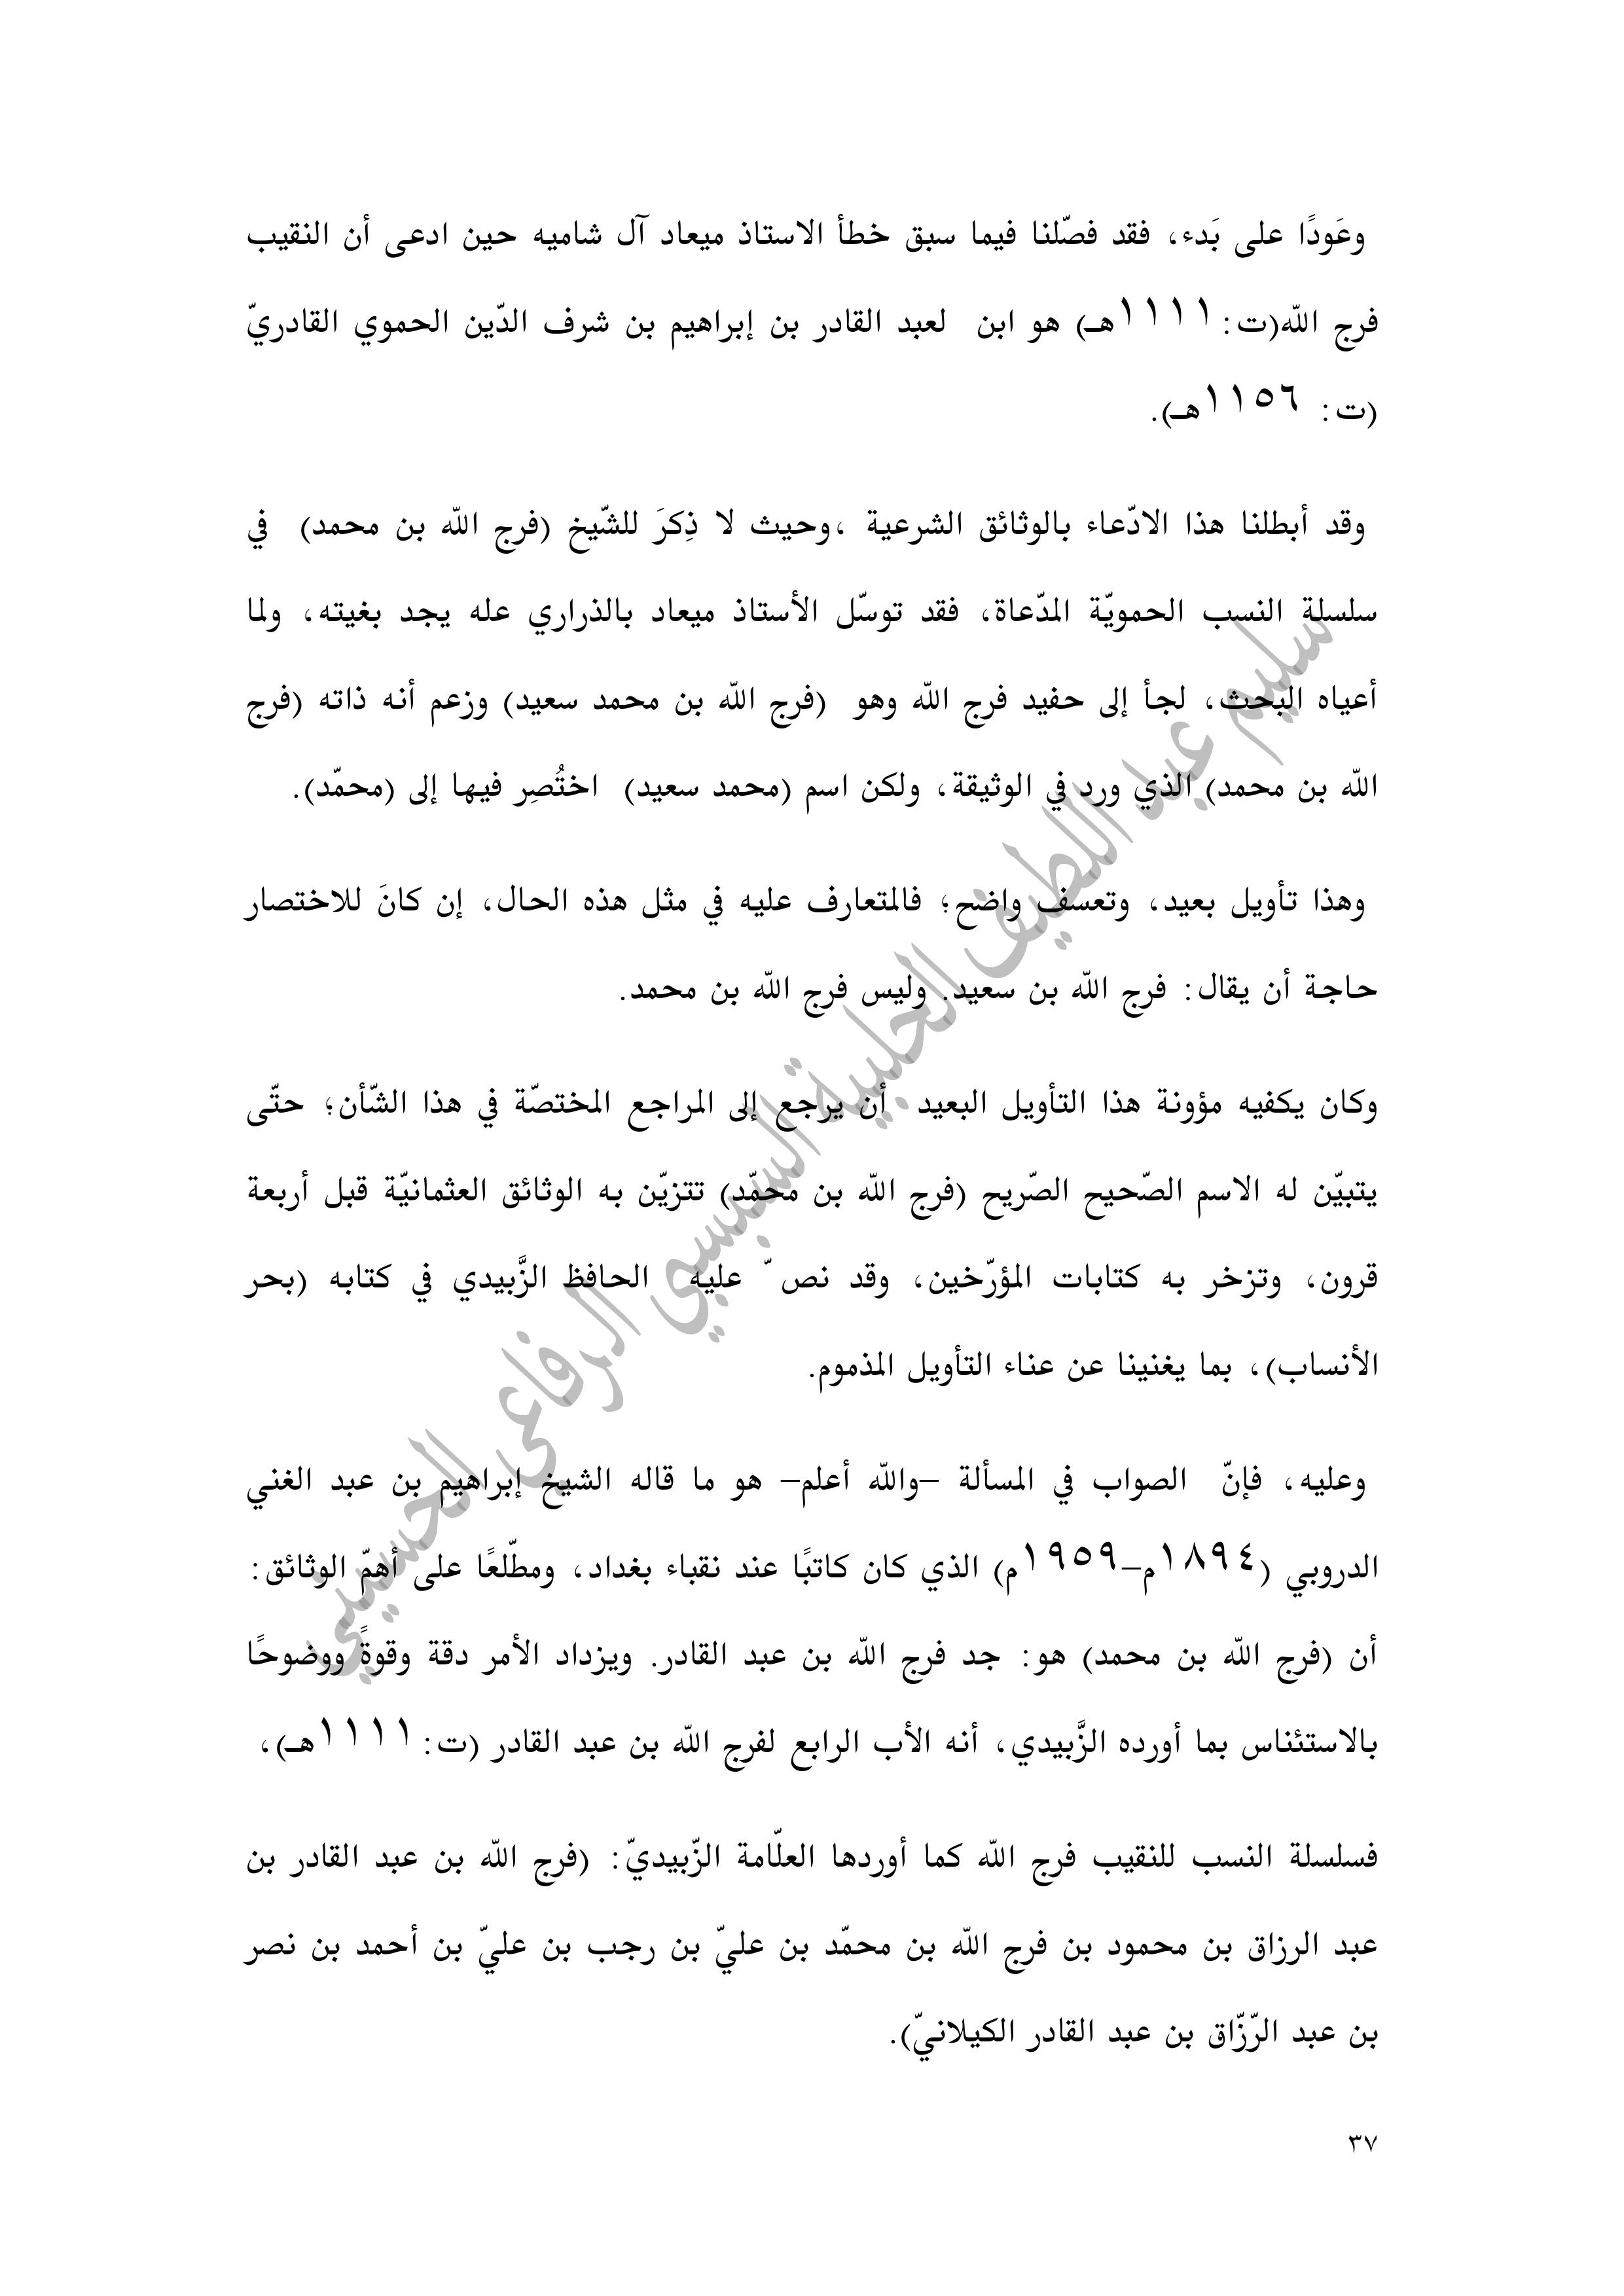 وعَودًا على بَدء، فقد فصّلنا فيما سبق خطأ الاستاذ ميعاد آل شاميه حين ادعى أن النقيب
فرج الله(ت: ١١١١هـ) هو ابن لعبد القادر بن إبراهيم بن شرف الدّين الحموي القادريّ
(ت: ١١٥٦هـ).
وقد أبطلنا هذا الادّعاء بالوثائق الشرعية ،وحيث لا ذِكرَ للشّيخ (فرج الله بن محمد) في
سلسلة النسب الحمويّة المدّعاة، فقد توسّل الأستاذ ميعاد بالذراري عله يجد بغيته، ولما
أعياه البحث، لجأ إلى حفيد فرج الله وهو (فرج الله بن محمد سعيد) وزعم أنه ذاته (فرج
الله بن محمد) الذي ورد في الوثيقة، ولكن اسم (محمد سعيد) اختُصِر فيها إلى (محمّد).
وهذا تأويل بعيد، وتعسف واضح؛ فالمتعارف عليه في مثل هذه الحال، إن كانَ للاختصار
حاجة أن يقال: فرج الله بن سعيد. وليس فرج الله بن محمد.
وكان يكفيه مؤونة هذا التأويل البعيد أن يرجع إلى المراجع المختصّة في هذا الشّأن؛ حتّى
يتبيّن له الاسم الصّحيح الصّريح (فرج الله بن محمّد) تتزيّن به الوثائق العثمانيّة قبل أربعة
قرون، وتزخر به كتابات المؤرّخين، وقد نص ّ عليه الحافظ الزَّبيدي في كتابه (بحر
الأنساب)، بما يغنينا عن عناء التأويل المذموم.
وعليه، فإنّ الصواب في المسألة –والله أعلم– هو ما قاله الشيخ إبراهيم بن عبد الغني
الدروبي (١٨٩٤م–١٩٥٩م) الذي كان كاتبًا عند نقباء بغداد، ومطّلعًا على أهمّ الوثائق:
أن (فرج الله بن محمد) هو: جد فرج الله بن عبد القادر. ويزداد الأمر دقة وقوةً ووضوحًا
بالاستئناس بما أورده الزَّبيدي، أنه الأب الرابع لفرج الله بن عبد القادر (ت: ١١١١هـ)،
فسلسلة النسب للنقيب فرج الله كما أوردها العلّامة الزّبيديّ: (فرج الله بن عبد القادر بن
عبد الرزاق بن محمود بن فرج الله بن محمّد بن عليّ بن رجب بن عليّ بن أحمد بن نصر
بن عبد الرّزّاق بن عبد القادر الكيلانيّ).
٣٧
سليم عبد اللطيف الحلبية السبسبي الرفاعي الحسيني